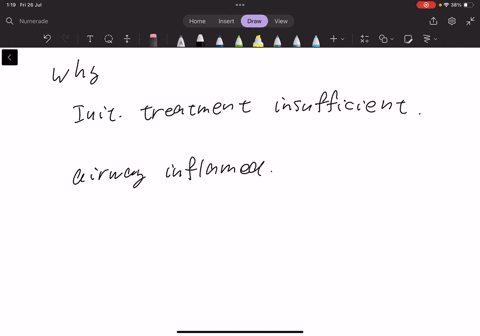 1:19 Fri 26 Jul
38%
Numerade
Home Insert Draw View
T
why
Init. treatment insufficient.
airway inflamed.